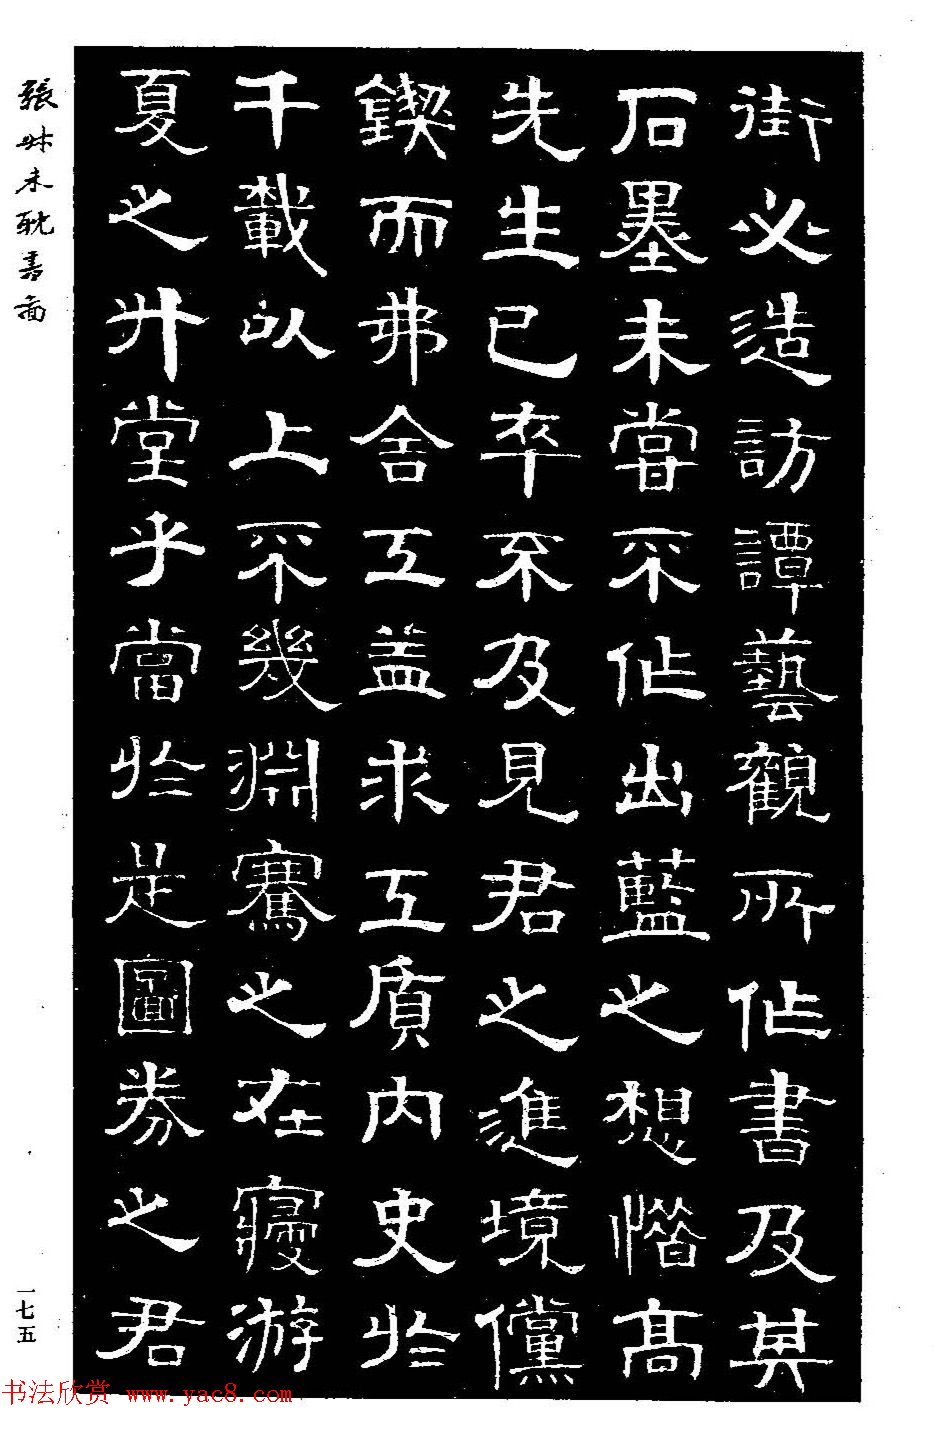 街必造訪譚藝觀所作書及其
石墨未嘗不作出藍之想惜高
先生已卒不及見君之進境儻
鍥而弗舍工益求工質内史於
千載以上不幾淵騫之在寢游
夏之升堂乎當於是圖券之君
張叔未耽壽圖
一七五
书法欣赏 www.yac8.com